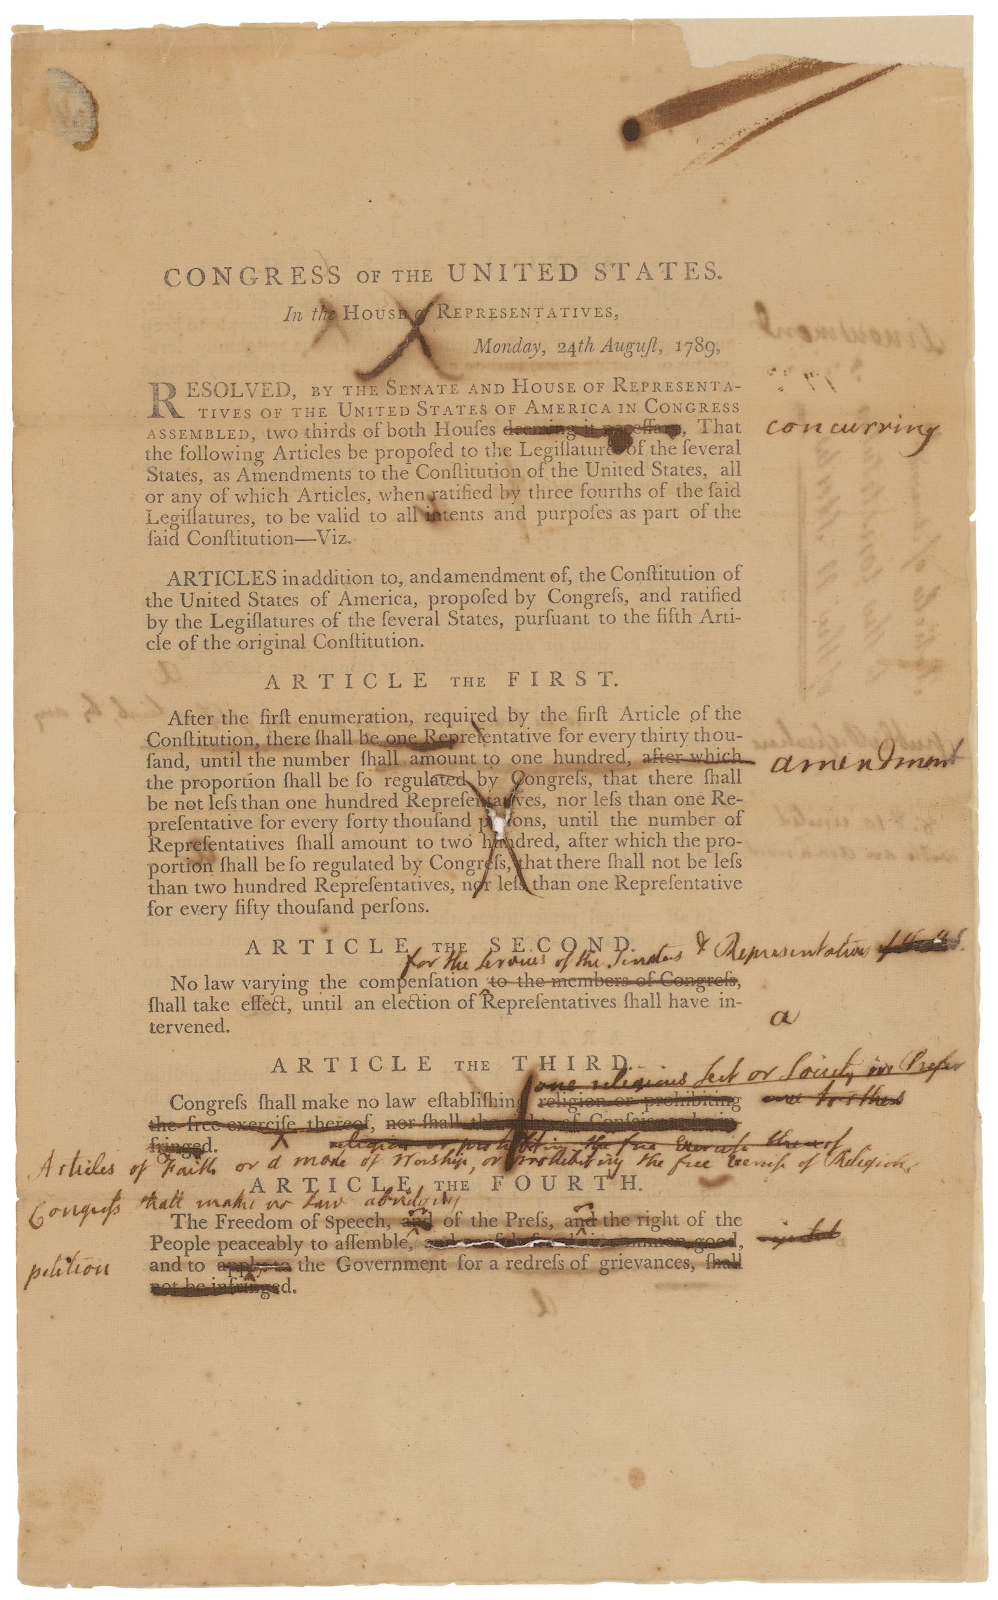 CONGRESS OF THE UNITED STATES.
In the HOUSE of REPRESENTATIVES,
Monday, 24th Auguſt, 1789,
RESOLVED, BY THE SENATE AND HOUSE OF REPRESENTA-
TIVES OF THE UNITED STATES OF AMERICA IN CONGRESS
ASSEMBLED, two thirds of both Houſes deeming it neceſſary, That concurring
the following Articles be propoſed to the Legiſlatures of the ſeveral
States, as Amendments to the Conſtitution of the United States, all
or any of which Articles, when ratified by three fourths of the ſaid
Legiſlatures, to be valid to all intents and purpoſes as part of the
ſaid Conſtitution—Viz.
ARTICLES in addition to, and amendment of, the Conſtitution of
the United States of America, propoſed by Congreſs, and ratified
by the Legiſlatures of the ſeveral States, purſuant to the fifth Arti-
cle of the original Conſtitution.
ARTICLE THE FIRST.
After the firſt enumeration, required by the firſt Article of the
Conſtitution, there ſhall be one Repreſentative for every thirty thou-
ſand, until the number ſhall amount to one hundred, after which amendment
the proportion ſhall be ſo regulated by Congreſs, that there ſhall
be not leſs than one hundred Repreſentatives, nor leſs than one Re-
preſentative for every forty thouſand perſons, until the number of
Repreſentatives ſhall amount to two hundred, after which the pro-
portion ſhall be ſo regulated by Congreſs, that there ſhall not be leſs
than two hundred Repreſentatives, nor leſs than one Repreſentative
for every fifty thouſand perſons.
ARTICLE THE SECOND.
for the services of the Senators & Representatives
No law varying the compenſation to the members of Congreſs,
ſhall take effect, until an election of Repreſentatives ſhall have in-
tervened.
a
ARTICLE THE THIRD.
one religious Sect or Society in Prefer
Congreſs ſhall make no law eſtabliſhing religion or prohibiting ence to others
the free exerciſe thereof, nor ſhall the rights of Conſcience be in-
fringed. religion or prohibiting the free Exercise thereof
Articles of Faith or a mode of Worship, or prohibiting the free exercise of Religion,
ARTICLE THE FOURTH.
Congreſs shall make no Law abridging
The Freedom of Speech, and of the Preſs, and the right of the
People peaceably to aſſemble, and conſult for their common good,
petition and to apply to the Government for a redreſs of grievances, ſhall
not be infringed.